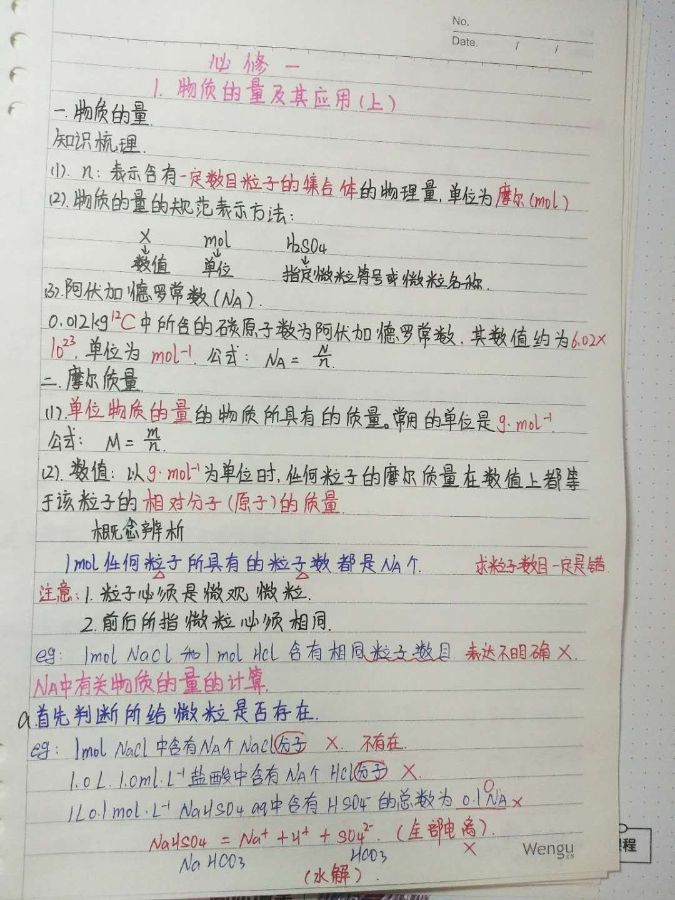 No.
Date. / /
必修一
1. 物质的量及其应用(上)
一.物质的量.
知识梳理.
(1). n: 表示含有一定数目粒子的集合体的物理量,单位为摩尔(mol)
(2).物质的量的规范表示方法:
X mol H₂SO₄
↓ ↓ ↓
数值 单位 指定微粒符号或微粒名称.
(3).阿伏加德罗常数(NA).
0.012kg¹²C中所含的碳原子数为阿伏加德罗常数.其数值约为6.02×
10²³.单位为 mol⁻¹. 公式: NA = N/n.
二.摩尔质量.
(1).单位物质的量的物质所具有的质量。常用的单位是g·mol⁻¹
公式: M = m/n.
(2).数值:以g·mol⁻¹为单位时,任何粒子的摩尔质量在数值上都等
于该粒子的相对分子(原子)的质量.
概念辨析
1mol任何粒子所具有的粒子数都是NA个. 求粒子数目一定是错.
注意:1.粒子必须是微观微粒.
2.前后所指微粒必须相同.
eg: 1mol NaCl 和1mol HCl 含有相同粒子数目 表达不明确 ×.
NA中有关物质的量的计算.
a.首先判断所给微粒是否存在.
eg: 1mol NaCl中含有NA个NaCl分子 ×. 不存在.
1.0L 1.0ml·L⁻¹盐酸中含有NA个HCl分子 ×.
1L0.1mol·L⁻¹ NaHSO₄ aq中含有HSO₄⁻的总数为0.1NA ×
0
NaHSO₄ = Na⁺ + H⁺ + SO₄²⁻. (全部电离).
NaHCO₃ HCO₃ ×
(水解)
Wengu
程